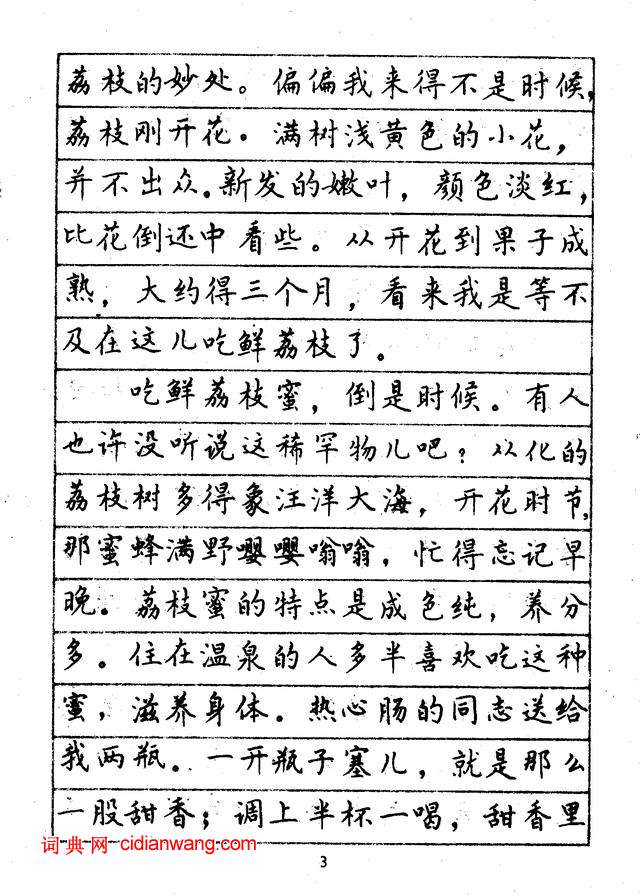 荔枝的妙处。偏偏我来得不是时候，
荔枝刚开花。满树浅黄色的小花，
并不出众。新发的嫩叶，颜色淡红，
比花倒还中看些。从开花到果子成
熟，大约得三个月，看来我是等不
及在这儿吃鲜荔枝了。
吃鲜荔枝蜜，倒是时候。有人
也许没听说这稀罕物儿吧？从化的
荔枝树多得象汪洋大海，开花时节，
那蜜蜂满野嘤嘤嗡嗡，忙得忘记早
晚。荔枝蜜的特点是成色纯，养分
多。住在温泉的人多半喜欢吃这种
蜜，滋养身体。热心肠的同志送给
我两瓶。一开瓶子塞儿，就是那么
一股甜香；调上半杯一喝，甜香里
词典网-cidianwang.com
3